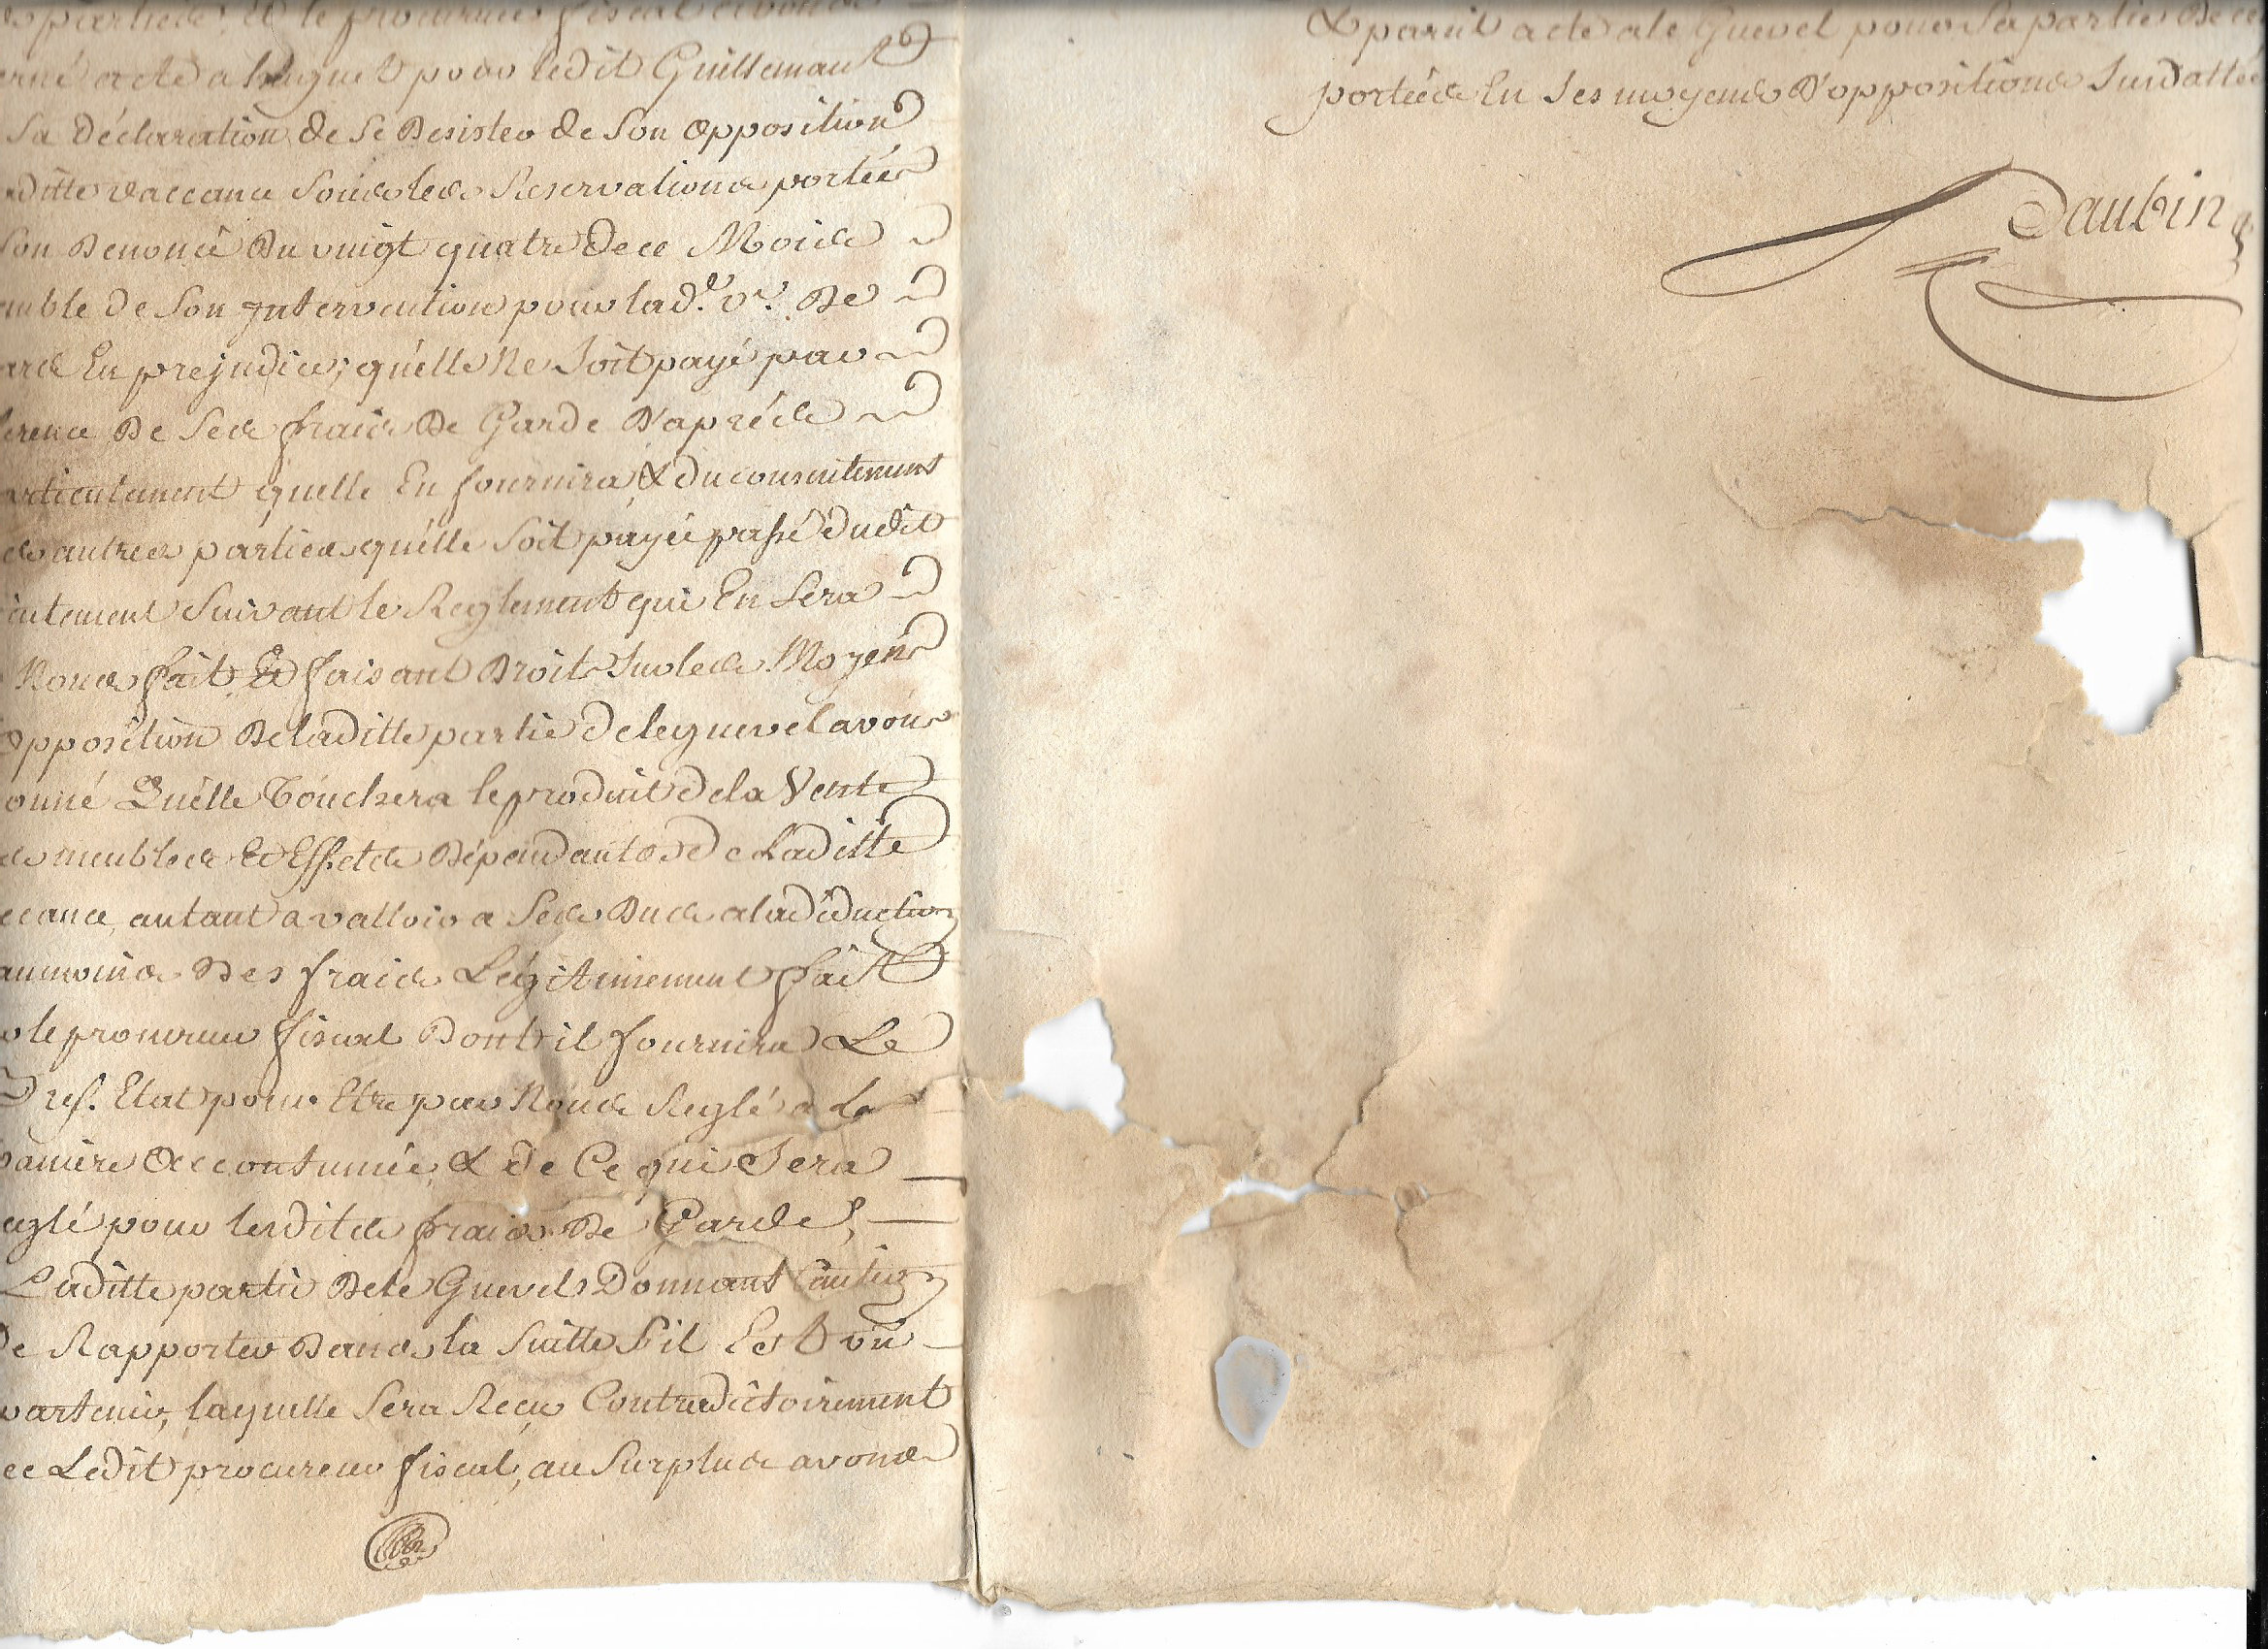 parties, Et le procureur fiscal avons
erné acte a huguet pour ledit Guillemaut
Sa déclaration de Se Desister de Son opposition
ditte vaccance Sous les Reservations portées
Son Denoncé Du vingt quatre De ce Mois
emble De Son Intervention pour lad.e v.e De
En prejudice, qu'elle Ne Soit payé par
ference De Ses frais De Garde D'aprés
articulement quelle En fournira, & du consentement
es autres parties qu'elle Soit payée passé dudit
entement Suivant le Reglement qui En Sera
Nous fait, Et faisant Droit Sur les Moyens
opposition De laditte partie De le guevel avons
onné Qu'elle Touchera le produit De la Vente
es meubles Et Effets Dépendantes De Laditte
ccance, autant a valloir a Ses Dus a la déduction
anmoins Des frais Légitimement fait
le procureur fiscal Dont il fournira Le
Bref. Etat pour Etre par Nous Reglé a La
maniere Accoutumée, & De Ce qui Sera
eglé pour lesdits frais De Garde,
Laditte partie De le Guevel Donnant Caution
De Rapporter Dans la Suitte S'il Est vû
partenir, laquelle Sera Recu Contradictoirement
ec Ledit procureur fiscal, au Surplus avons
& pareil acte a le Guevel pour Sa partie De ce
portées En Ses moyens D'oppositions Sus dattée
Daubin